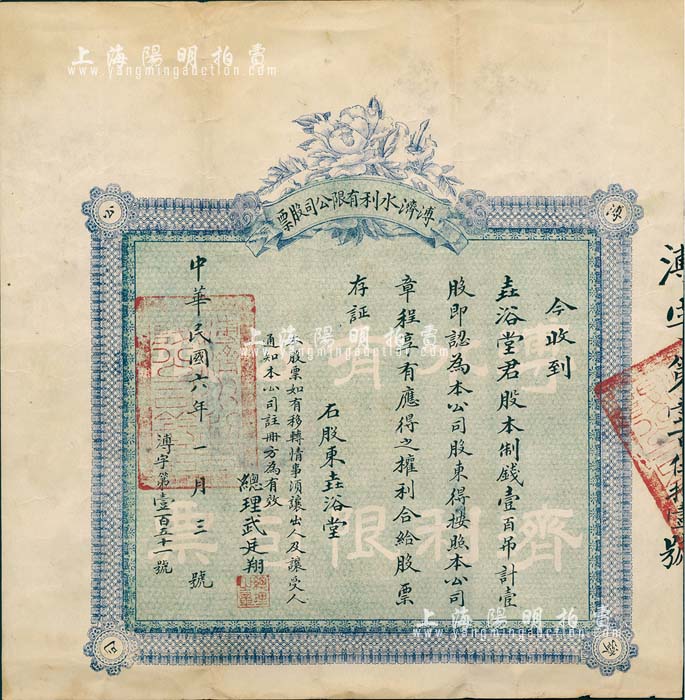 上海陽明拍賣
www.yangmingauction.com
溥濟水利有限公司股票
溥
濟
公
司
今收到
垚浴堂君股本制錢壹百吊計壹
股即認為本公司股東得按照本公司
章程享有應得之權利合給股票
存証
右股東垚浴堂
本股票如有移轉情事須讓出人及讓受人
通知本公司註冊方為有效
總理武廷翔
中華民國六年一月三號
溥字第壹百五十一號
上海陽明拍賣
www.yangmingauction.com
上海陽明拍賣
www.yangmingauction.com